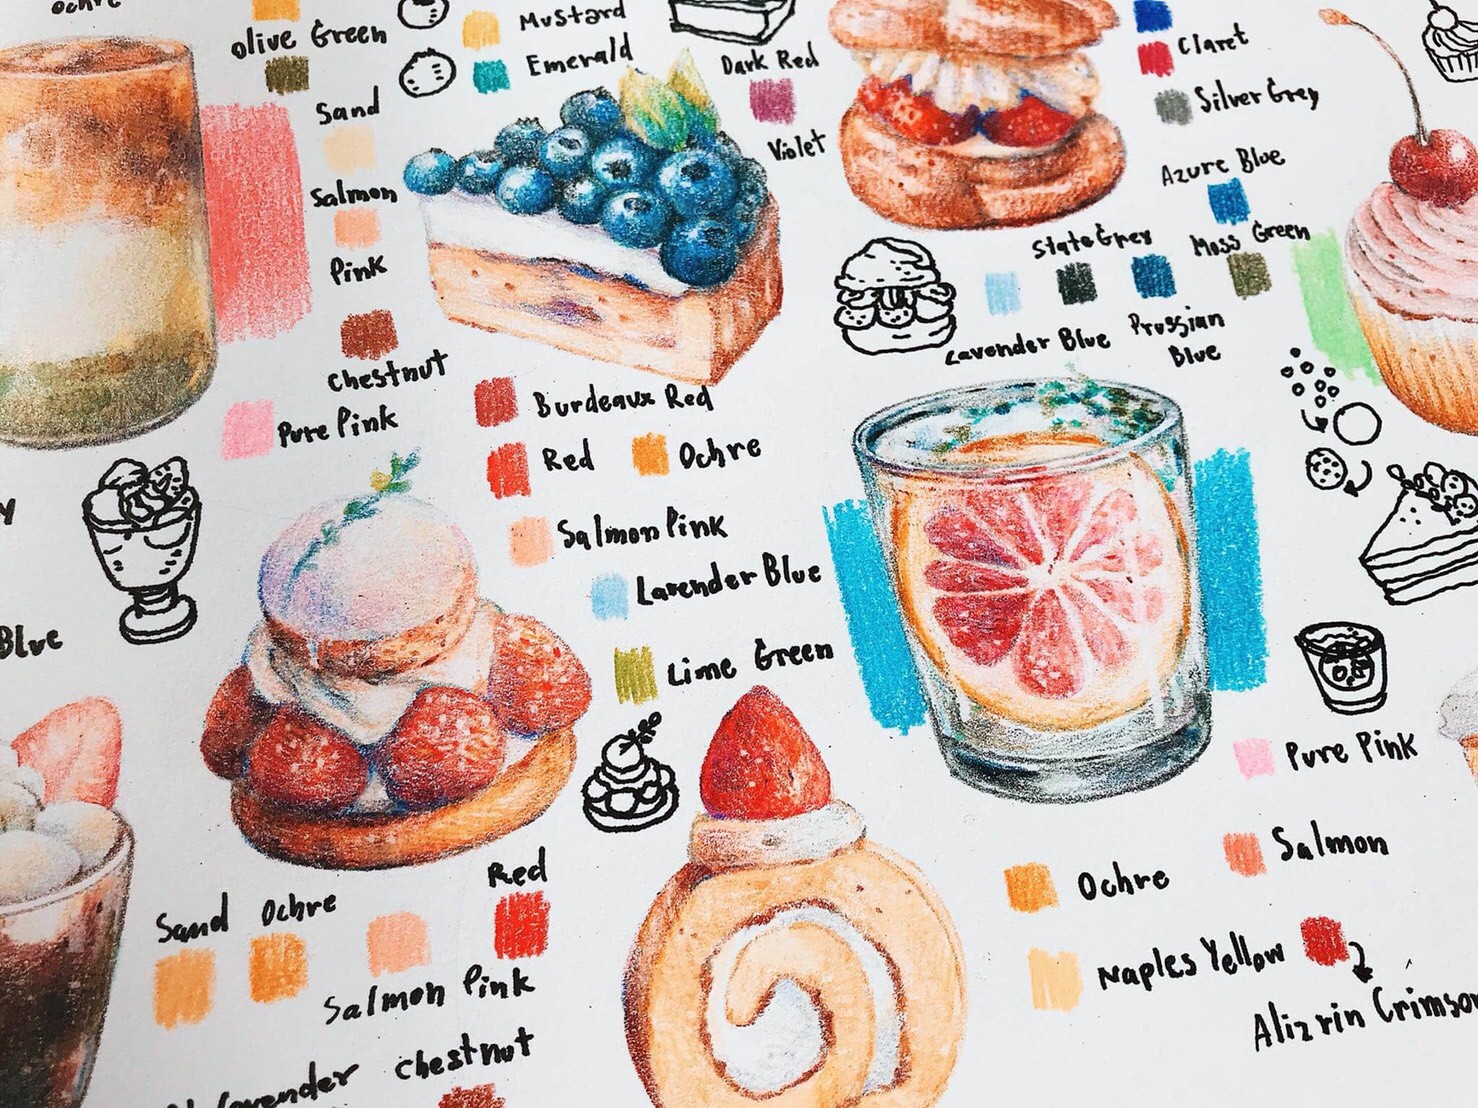 ochre
Olive Green
Mustard
Emerald
Sand
Salmon
Pink
Chestnut
Pure Pink
Dark Red
Violet
Claret
Silver Grey
Azure Blue
State Grey
Moss Green
Lavender Blue
Prussian
Blue
Burdeaux Red
Red
Ochre
Salmon Pink
Lavender Blue
Lime Green
Blue
Pure Pink
Salmon
Ochre
Naples Yellow
Alizrin Crimson
Red
Sand
Ochre
Salmon Pink
Lavender
Chestnut